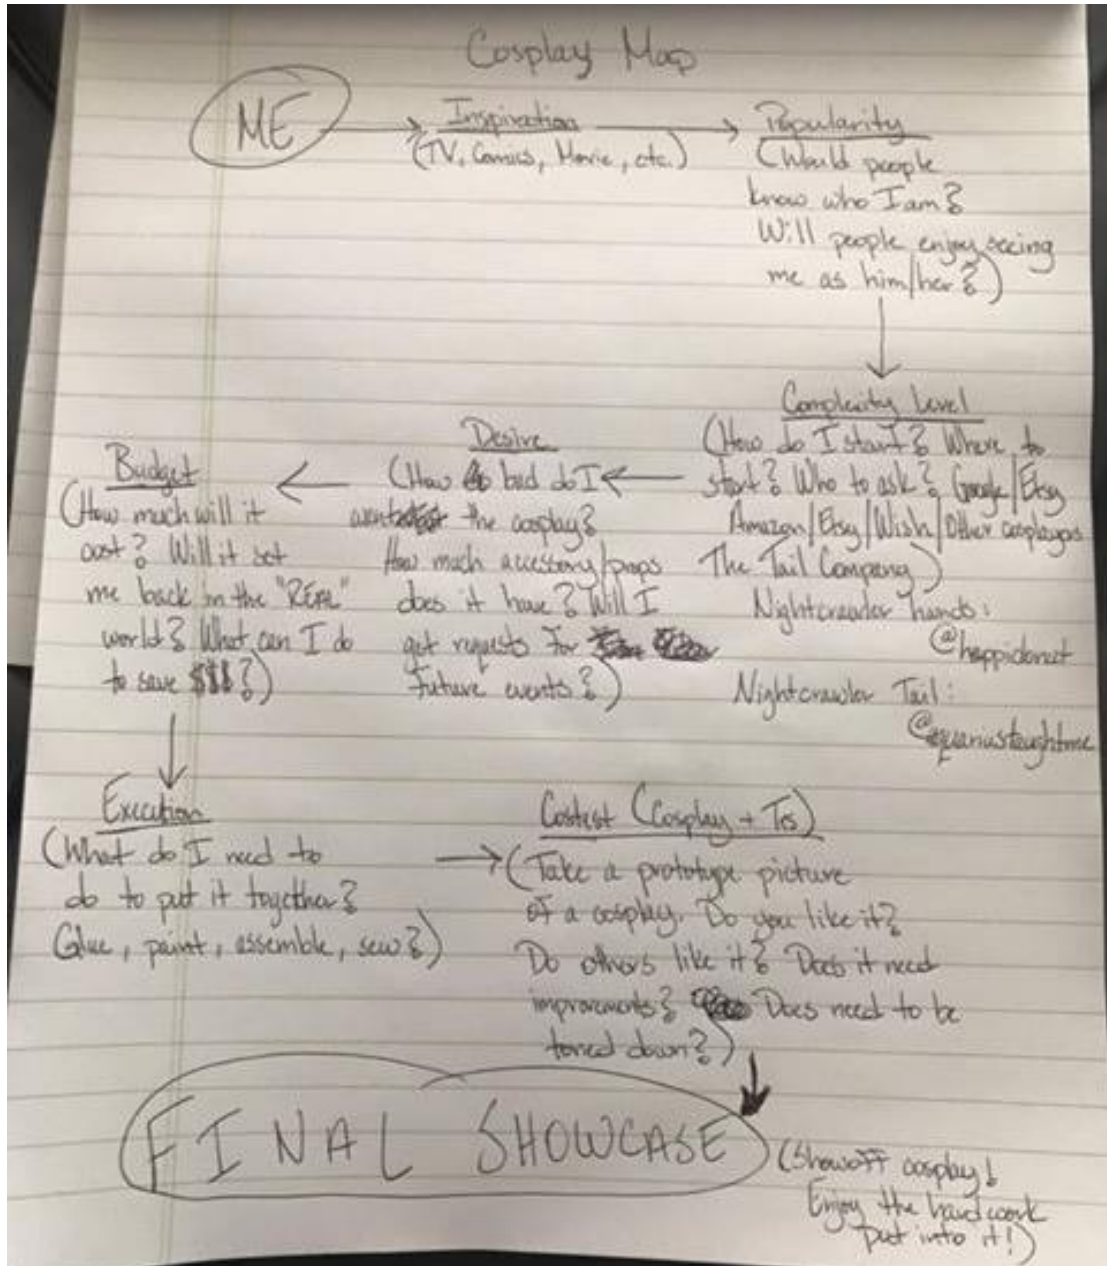 Cosplay Map
ME
Inspiration
(TV, Comics, Movie, etc.)
Popularity
(Would people
know who I am?
Will people enjoy seeing
me as him/her?)
Complexity Level
(How do I start? Where to
start? Who to ask? Google/Etsy
Amazon/Etsy/Wish/Other cosplayers
The Tail Company)
Nightcrawler hands:
@happidonut
Nightcrawler Tail:
Desire
(How bad do I
want the cosplay?
How much accessory/props
does it have? Will I
get requests for
future events?)
Budget
(How much will it
cost? Will it set
me back in the "REAL"
world? What can I do
to save $$$?)
Execution
(What do I need to
do to put it together?
Glue, paint, assemble, sew?)
(Cosplay +
(Take a prototype picture
of a cosplay. Do you like it?
Do others like it? Does it need
improvements? Does need to be
toned down?)
FINAL SHOWCASE
(Showoff cosplay!
Enjoy the hardwork
put into it!)